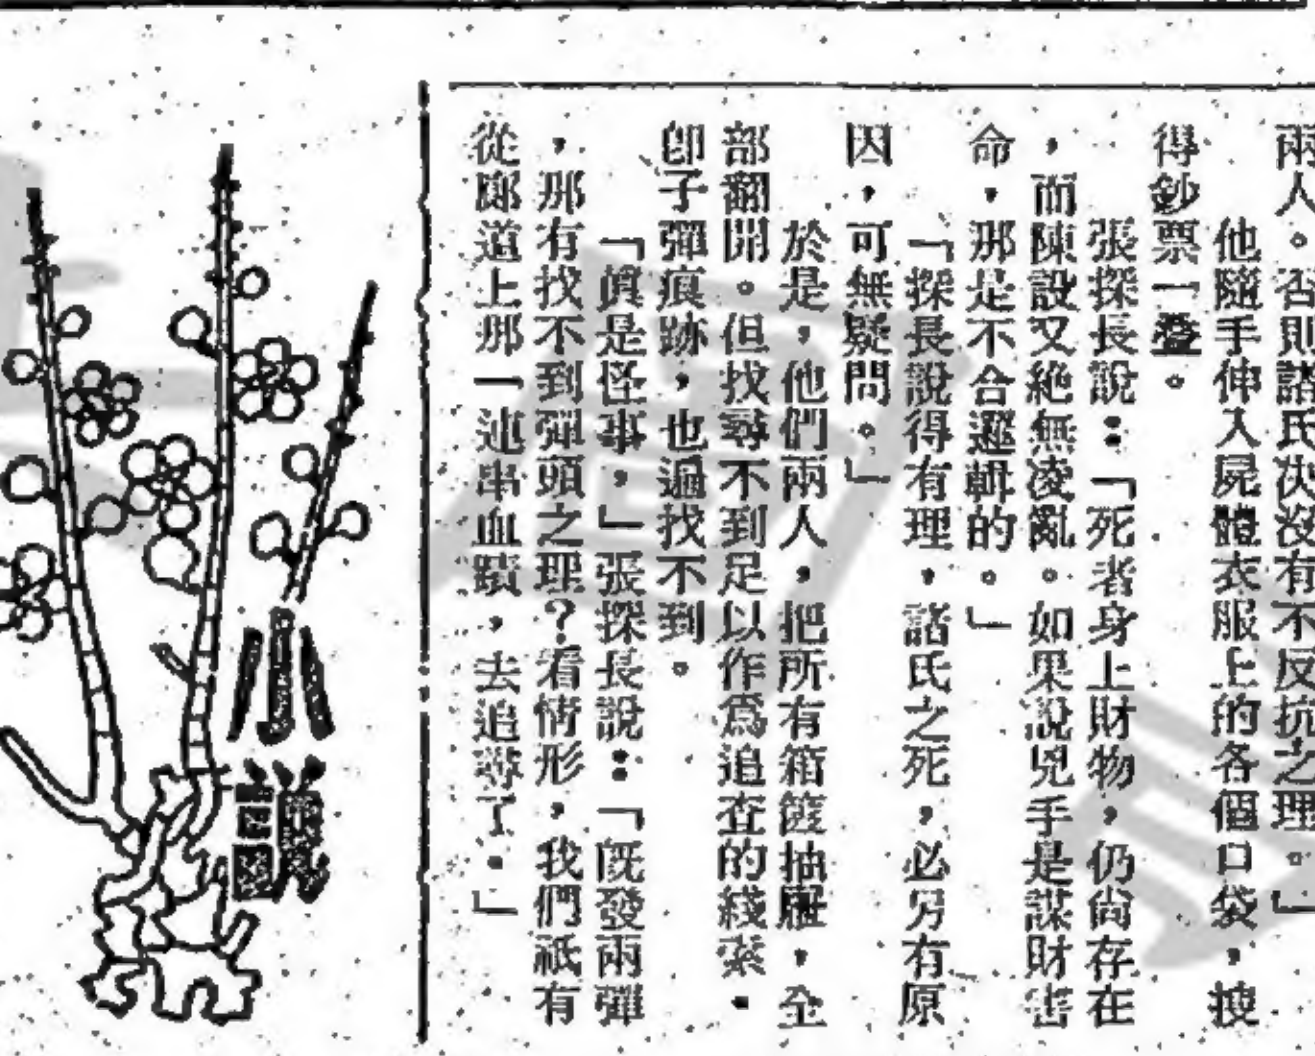 兩人。否則諸氏決沒有不反抗之理。」
他隨手伸入屍體衣服上的各個口袋，搜
得鈔票一疊。
張探長說：「死者身上財物，仍尙存在
，而陳設又絕無凌亂。如果說兇手是謀財害
命，那是不合邏輯的。」
「探長說得有理，諸氏之死，必另有原
因，可無疑問。」
於是，他們兩人，把所有箱篋抽屜，全
部翻開。但找尋不到足以作爲追查的綫索。
卽子彈痕跡，也遍找不到。
「眞是怪事，」張探長說：「旣發兩彈
，那有找不到彈頭之理？看情形，我們祇有
從廊道上那一連串血蹟，去追尋了。」
小說